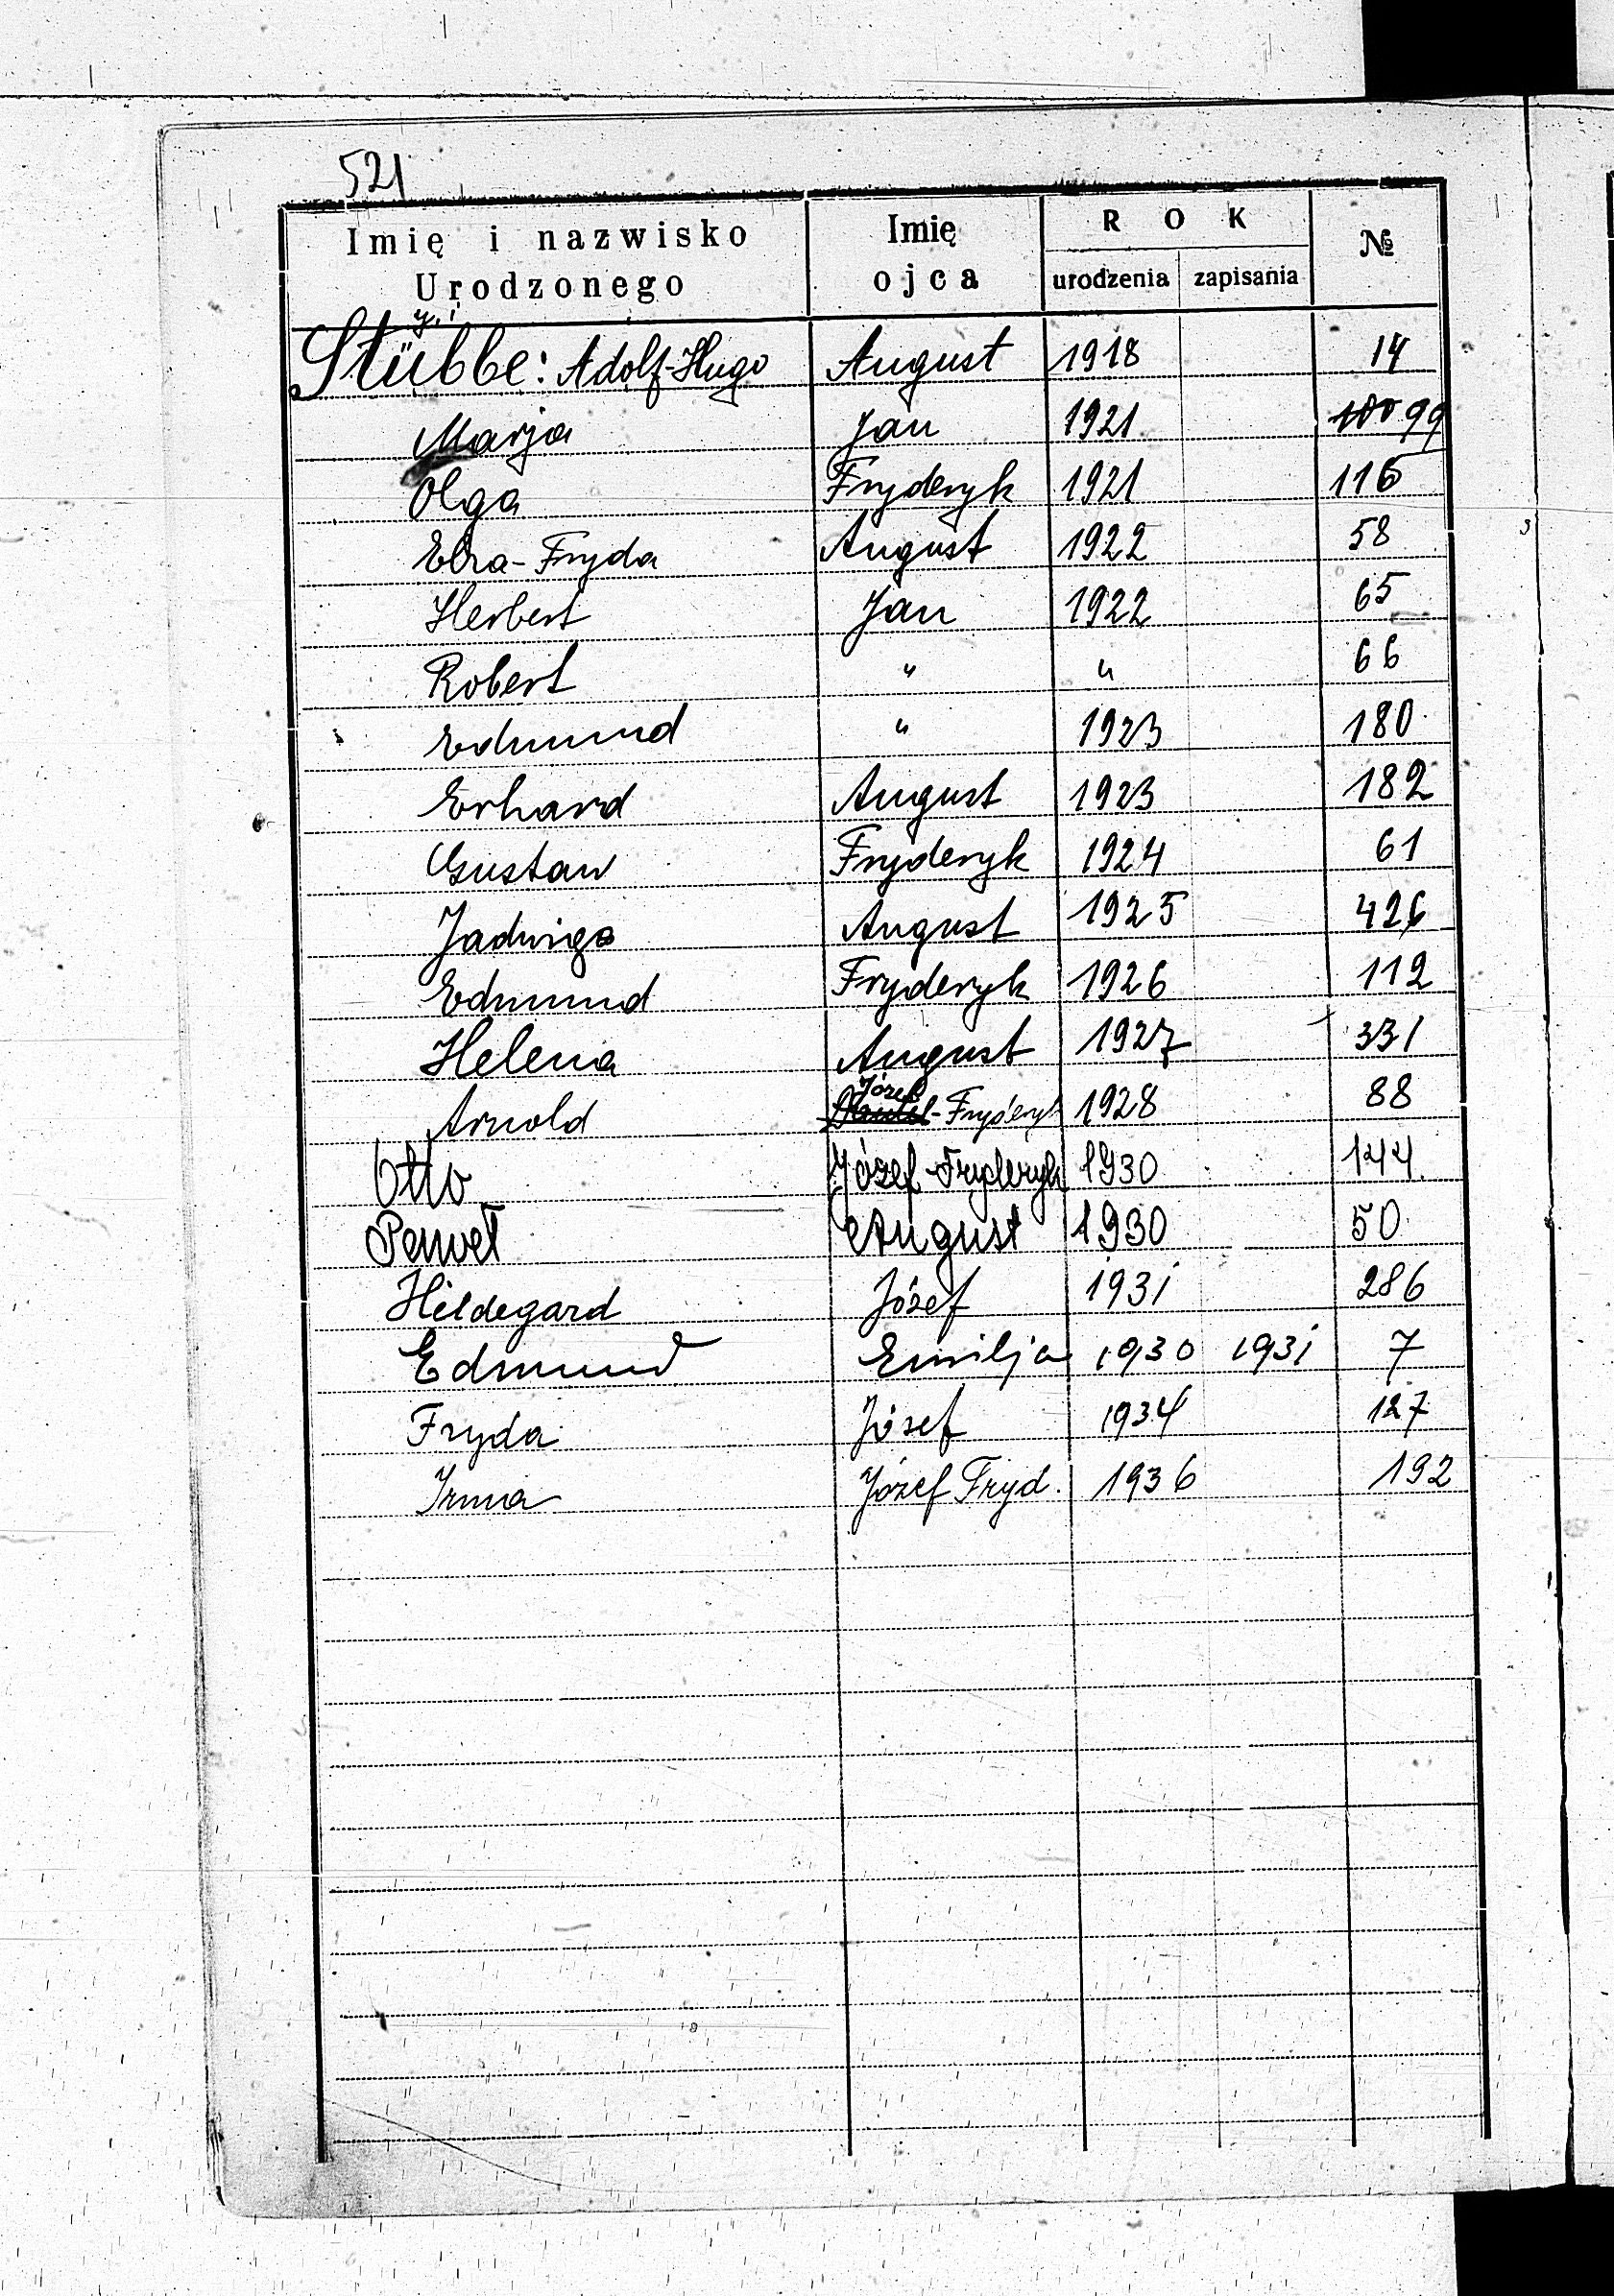 521
Imię i nazwisko Urodzonego Imię ojca ROK urodzenia zapisania №
y. i
Stübbe: Adolf-Hugo August 1918 14
Marja Jan 1921 100 99
Olga Fryderyk 1921 116
Elza-Fryda August 1922 58
Herbert Jan 1922 65
Robert " " 66
Edmund " 1923 180
Erhard August 1923 182
Gustaw Fryderyk 1924 61
Jadwiga August 1925 426
Edmund Fryderyk 1926 112
Helena August 1927 331
Arnold Józef-Fryderyk 1928 88
Otto Józef-Fryderyk 1930 144
Paweł August 1930 50
Hildegard Józef 1931 286
Edmund Emilja 1930 1931 7
Fryda Józef 1934 127
Irma Józef Fryd. 1936 192